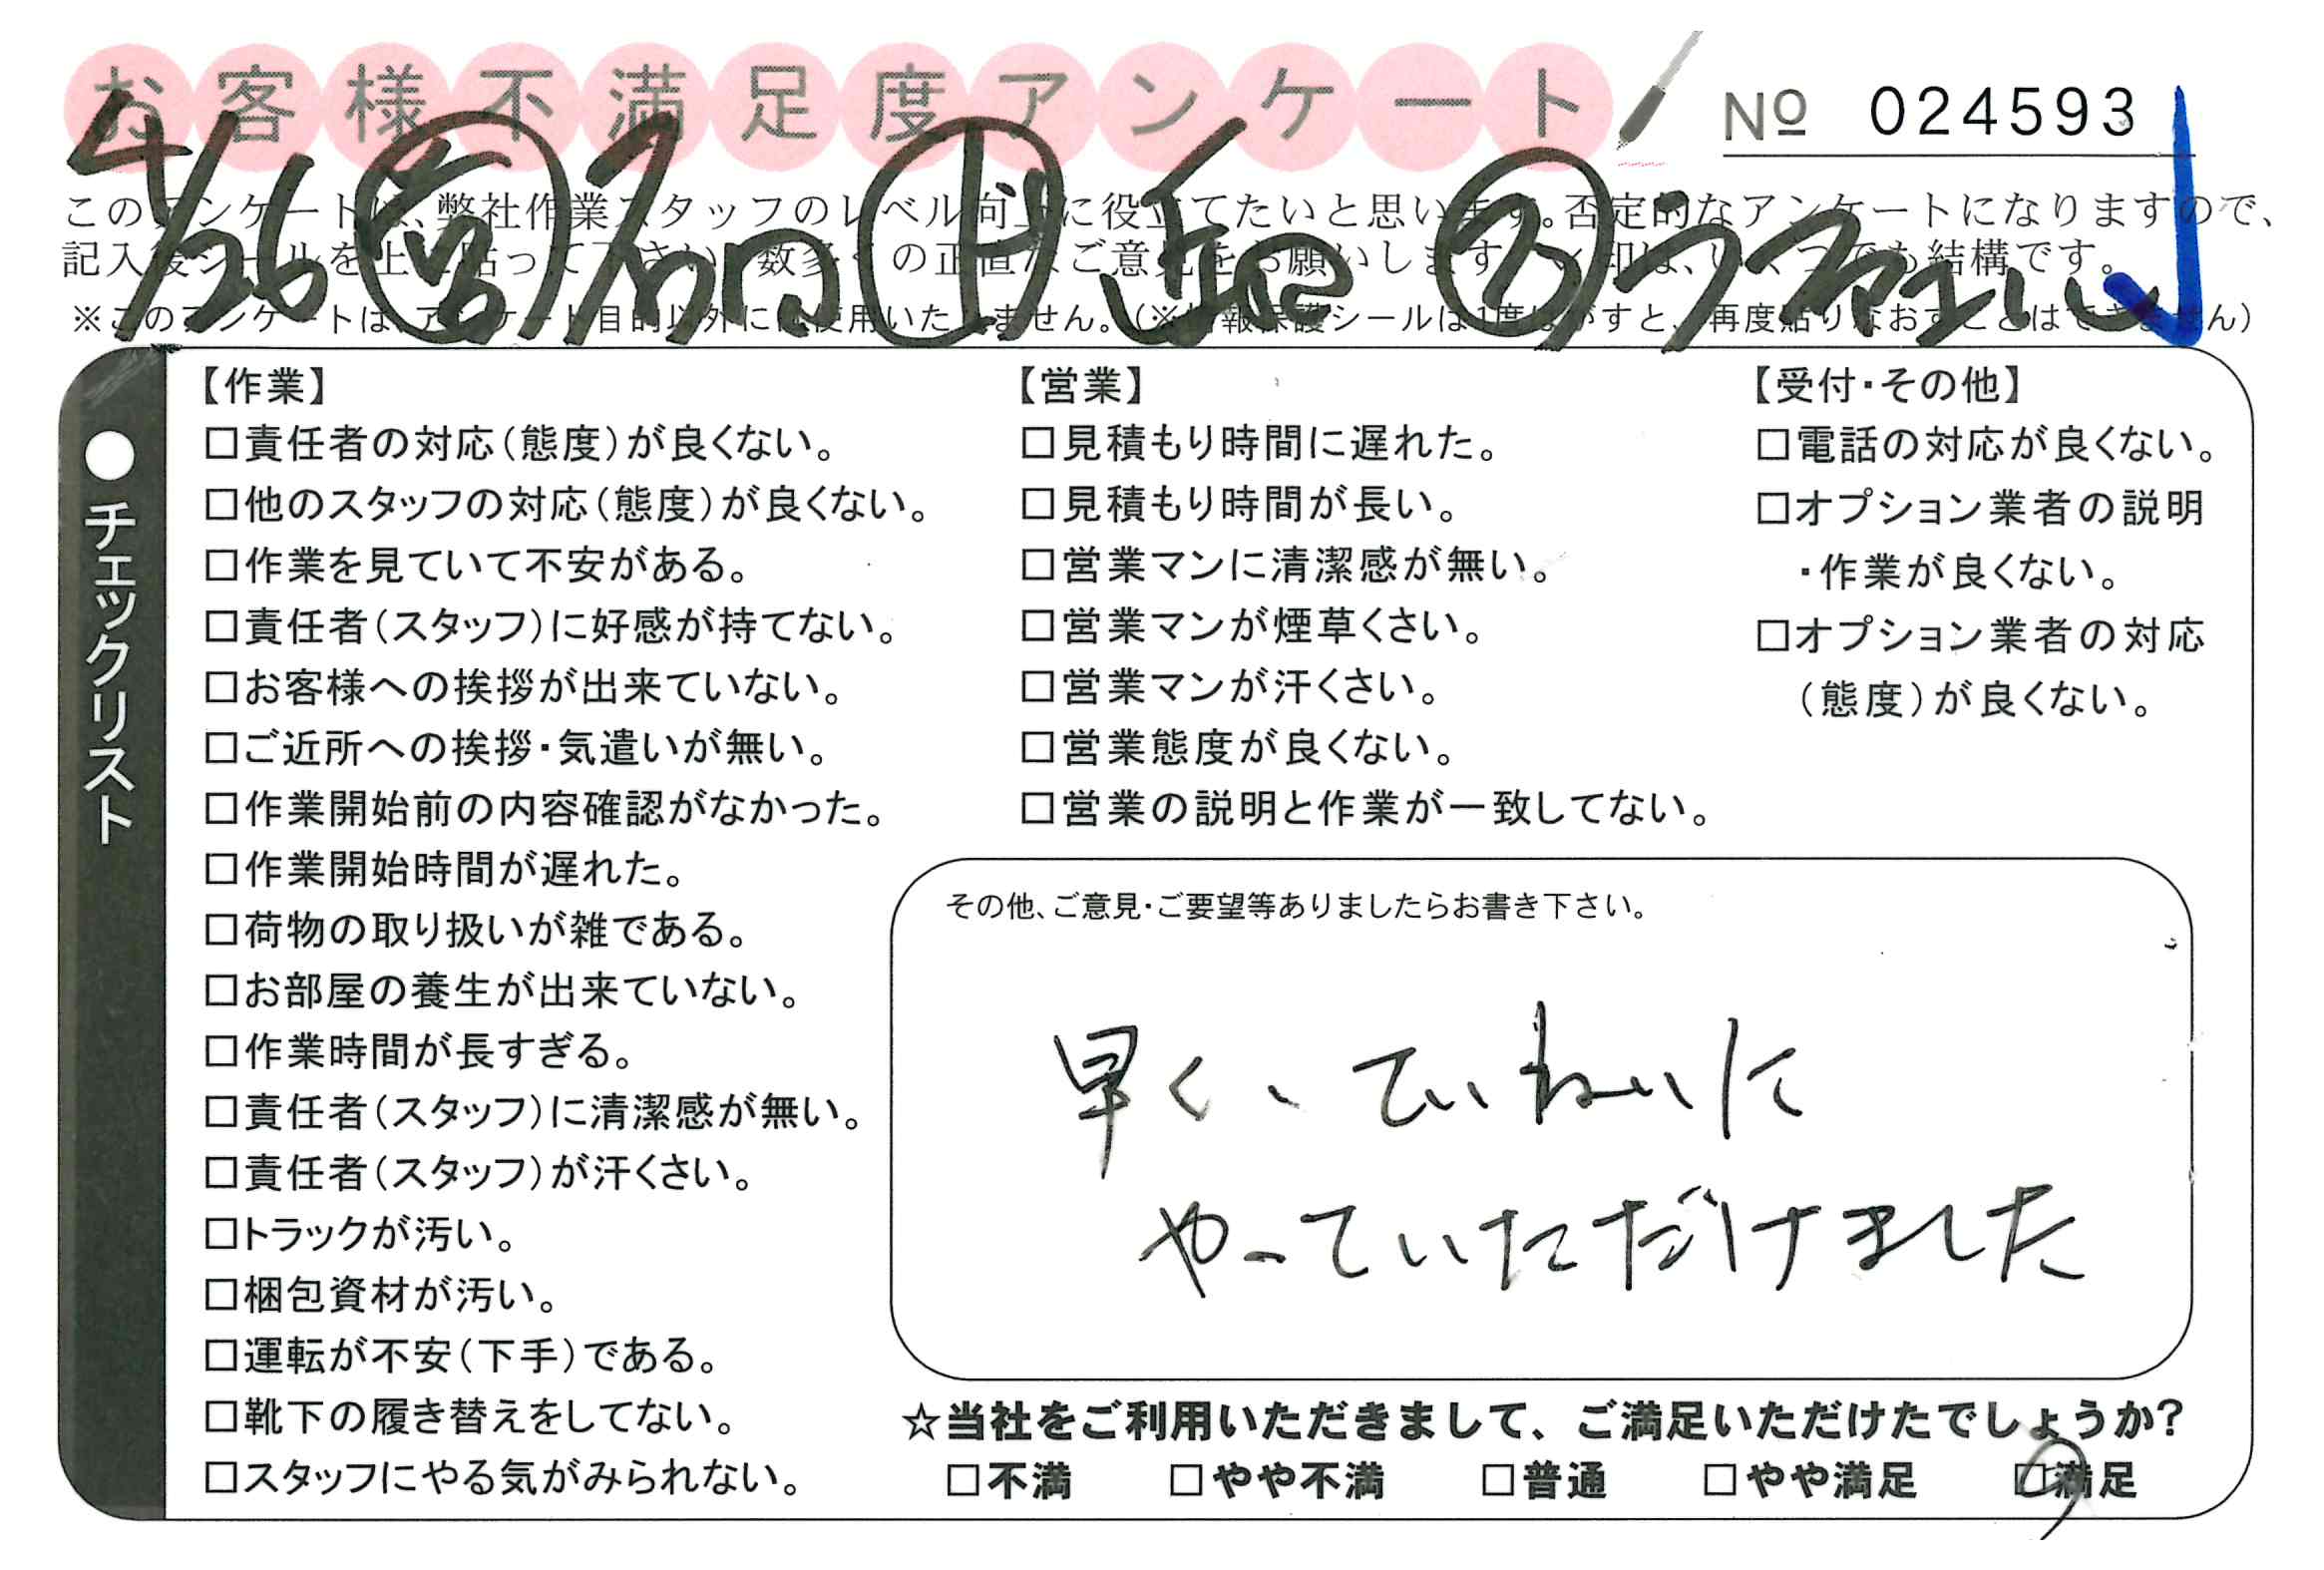 お客様不満足度アンケート
№ 024593
4/26
このアンケートは、弊社作業スタッフのレベル向上に役立てたいと思います。否定的なアンケートになりますので、
記入後シールを上に貼って下さい。数多くの正直なご意見をお願いします。✓印は、いくつでも結構です。
※このアンケートは、アンケート目的以外には使用いたしません。（※情報保護シールは1度はがすと、再度貼りなおすことはできません）
●チェックリスト
【作業】
□責任者の対応（態度）が良くない。
□他のスタッフの対応（態度）が良くない。
□作業を見ていて不安がある。
□責任者（スタッフ）に好感が持てない。
□お客様への挨拶が出来ていない。
□ご近所への挨拶・気遣いが無い。
□作業開始前の内容確認がなかった。
□作業開始時間が遅れた。
□荷物の取り扱いが雑である。
□お部屋の養生が出来ていない。
□作業時間が長すぎる。
□責任者（スタッフ）に清潔感が無い。
□責任者（スタッフ）が汗くさい。
□トラックが汚い。
□梱包資材が汚い。
□運転が不安（下手）である。
□靴下の履き替えをしてない。
□スタッフにやる気がみられない。
【営業】
□見積もり時間に遅れた。
□見積もり時間が長い。
□営業マンに清潔感が無い。
□営業マンが煙草くさい。
□営業マンが汗くさい。
□営業態度が良くない。
□営業の説明と作業が一致してない。
【受付・その他】
□電話の対応が良くない。
□オプション業者の説明
・作業が良くない。
□オプション業者の対応
（態度）が良くない。
その他、ご意見・ご要望等ありましたらお書き下さい。
早く、ていねいに
やっていただけました
☆当社をご利用いただきまして、ご満足いただけたでしょうか？
□不満 □やや不満 □普通 □やや満足 □満足